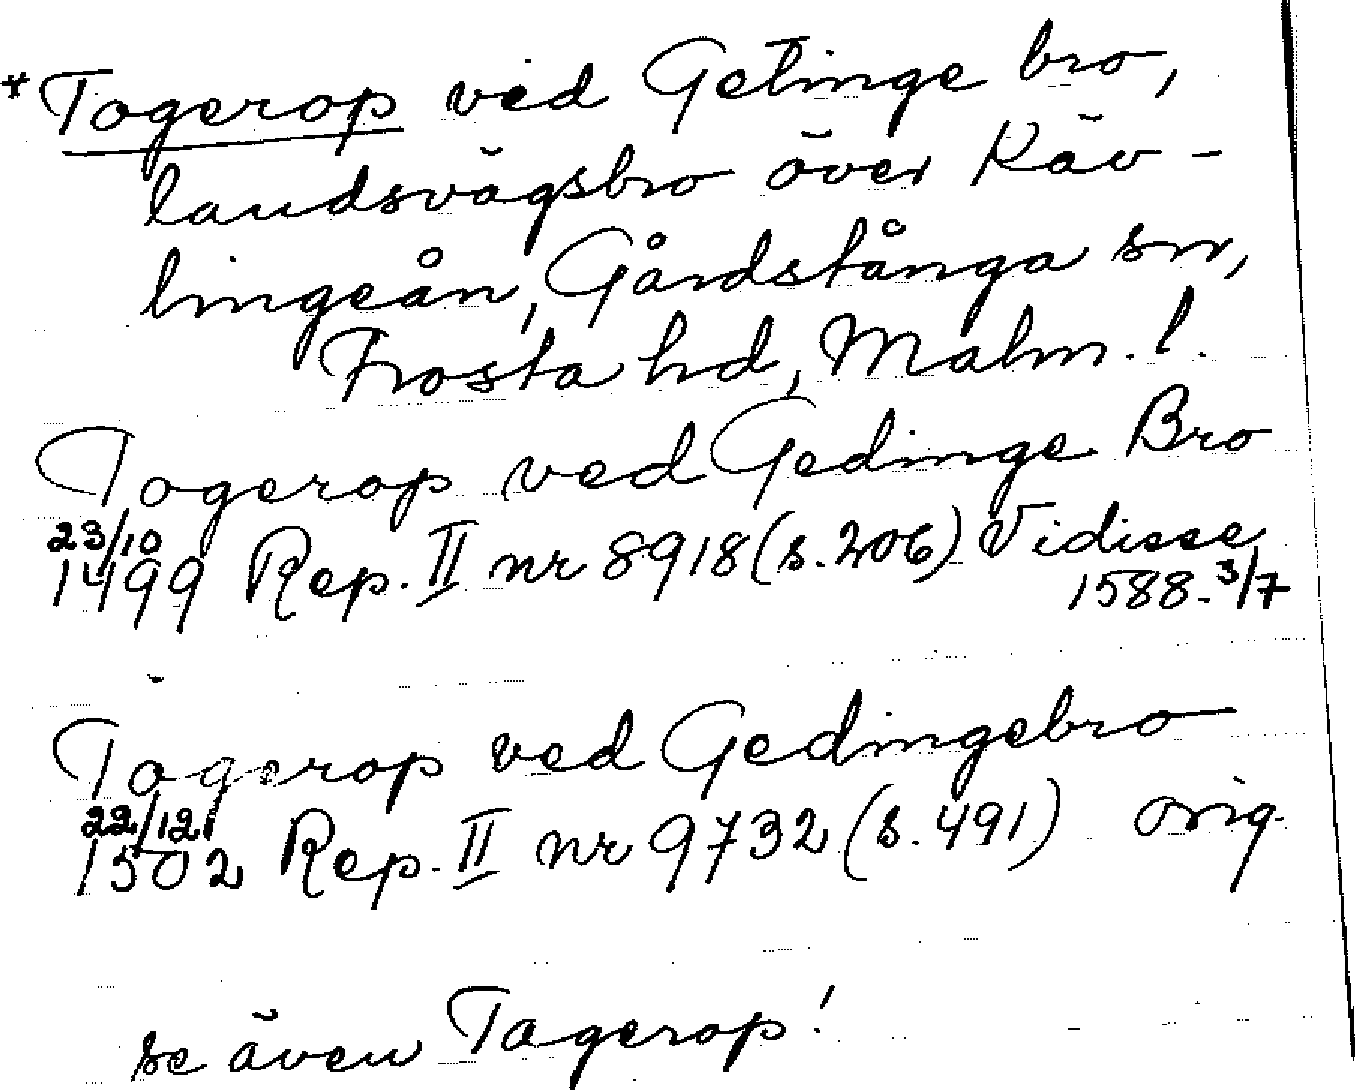 *Togerop vid Getinge bro,
landsvägsbro över Käv-
lingeån, Gårdstånga sn,
Frosta hd, Malm. l.
Togerop ved Gedinge Bro
23/10
1499 Rep. II nr 8918 (s. 206) Vidisse
1588-3/7
Togerop ved Gedingebro
22/12
1502 Rep. II nr 9732 (s. 491) orig.
se även Tagerop!